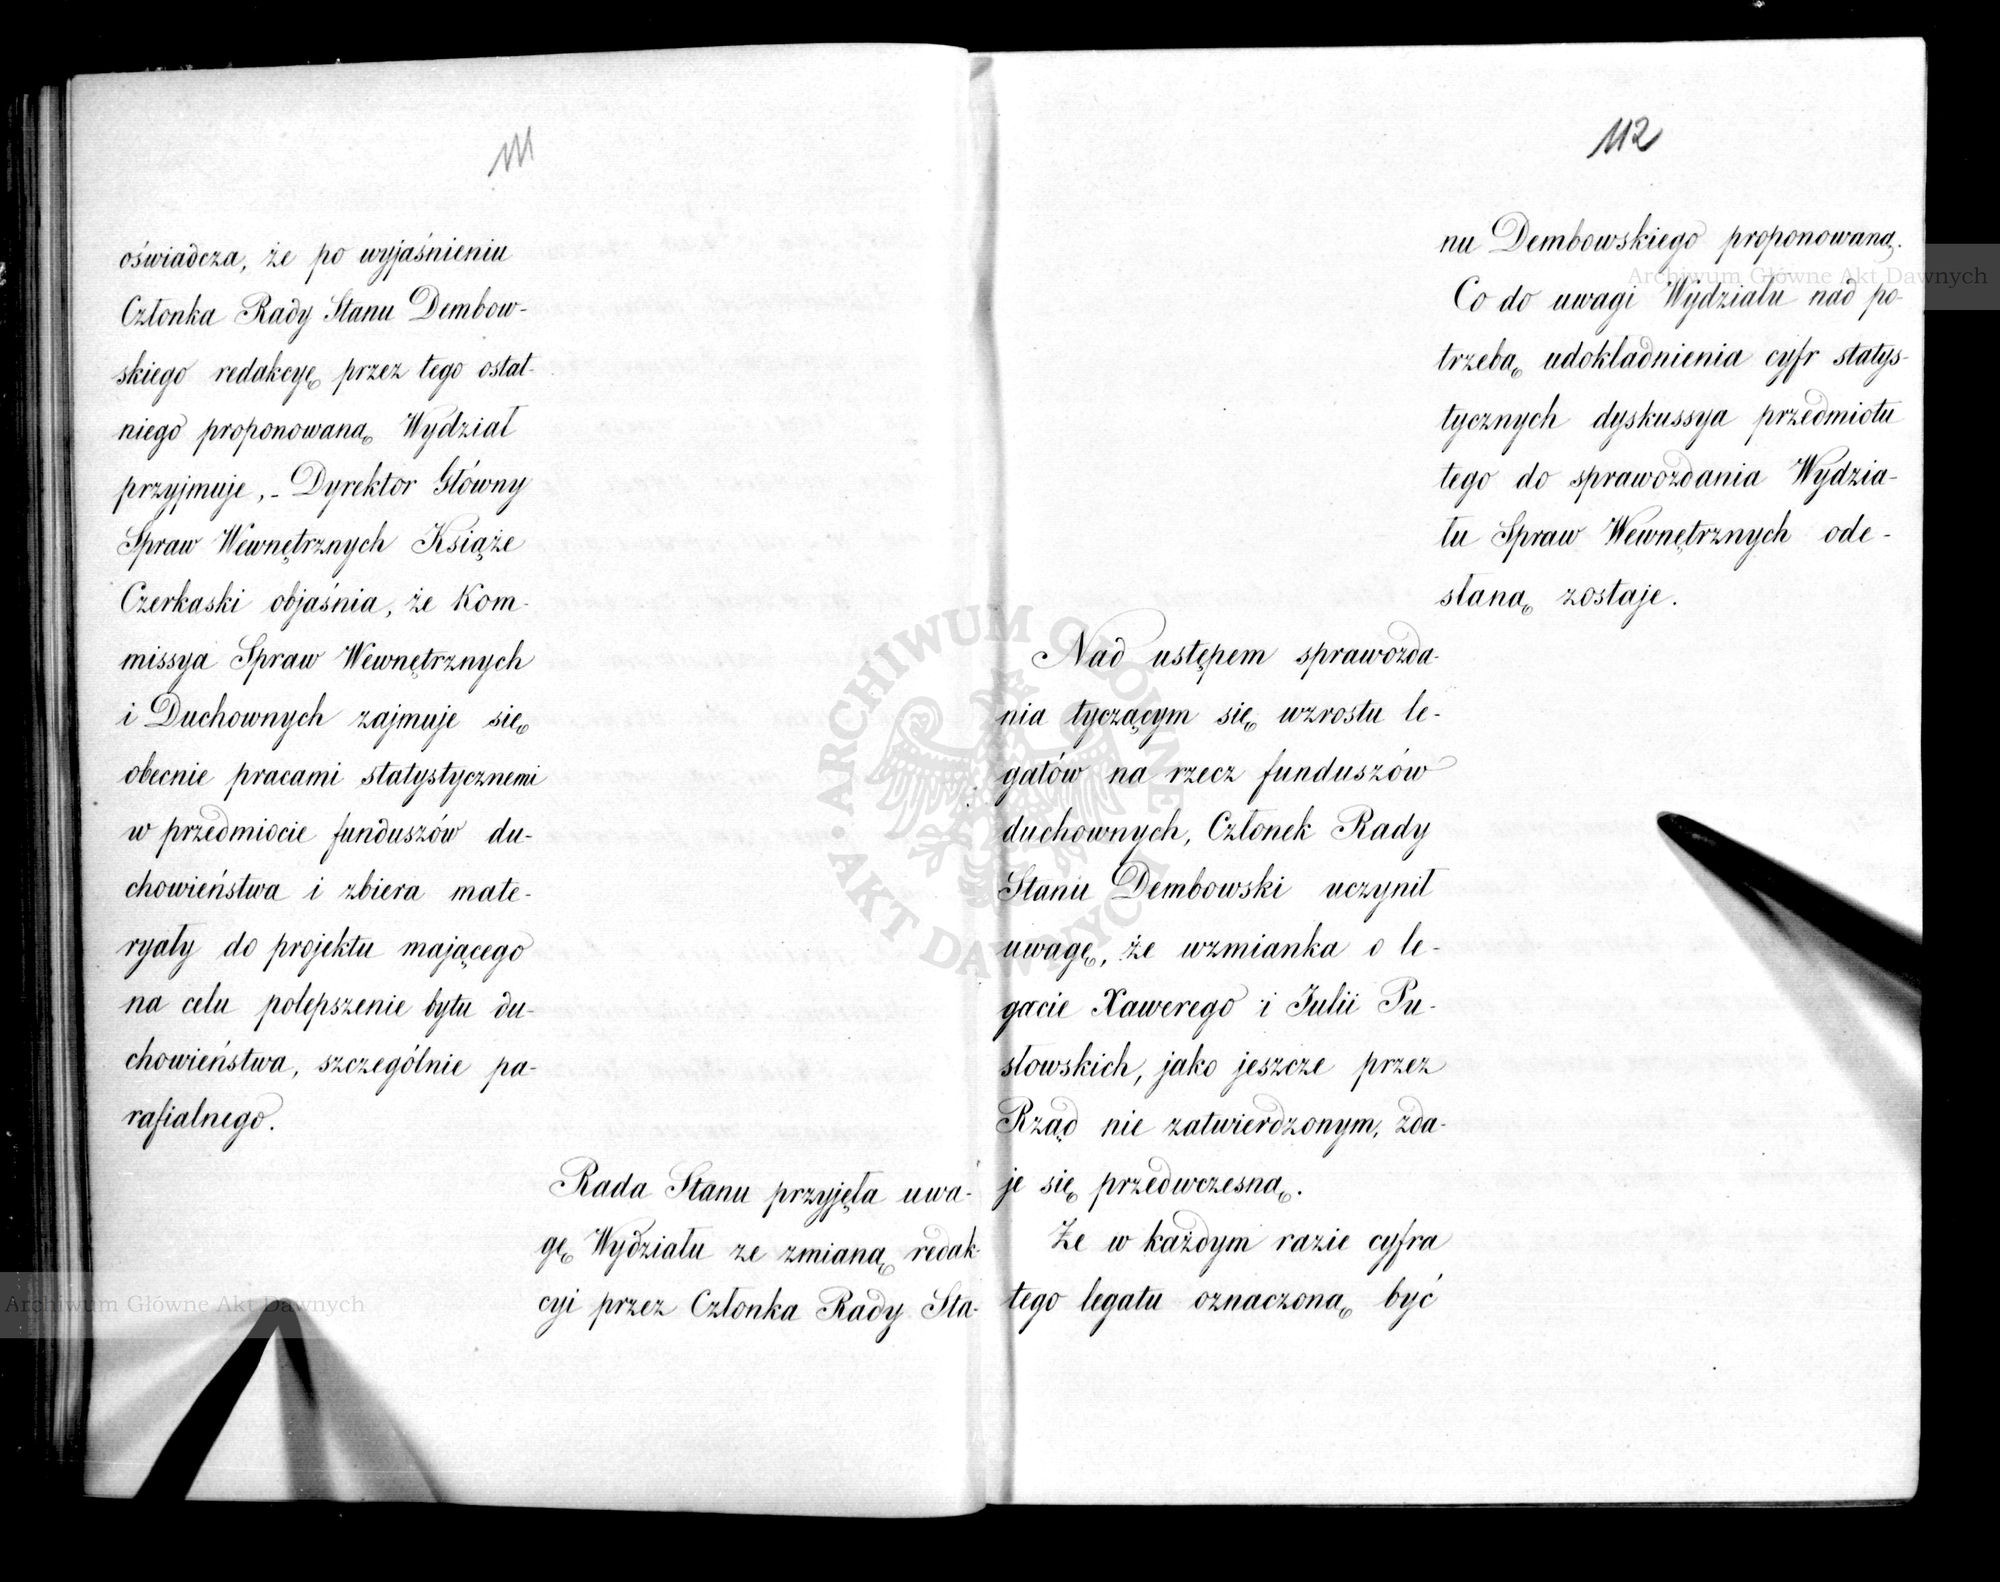 111
oświadcza, że po wyjaśnieniu
Członka Rady Stanu Dembow-
skiego redakcyę przez tego ostat-
niego proponowaną Wydział
przyjmuje, - Dyrektor Główny
Spraw Wewnętrznych Książe
Czerkaski objaśnia, że Kom-
missya Spraw Wewnętrznych
i Duchownych zajmuje się
obecnie pracami statystycznemi
w przedmiocie funduszów du-
chowieństwa i zbiera mate-
ryały do projektu mającego
na celu polepszenie bytu du-
chowieństwa, szczególnie pa-
rafialnego.
Rada Stanu przyjęła uwa-
gę Wydziału ze zmianą redak-
cyi przez Członka Rady Sta-
112
nu Dembowskiego proponowaną.
Co do uwagi Wydziału nad po-
trzebą udokładnienia cyfr statys-
tycznych dyskussya przedmiotu
tego do sprawozdania Wydzia-
łu Spraw Wewnętrznych ode-
słaną zostaje.
Nad ustępem sprawozda-
nia tyczącym się wzrostu le-
gatów na rzecz funduszów
duchownych, Członek Rady
Stanu Dembowski uczynił
uwagę, że wzmianka o le-
gacie Xawerego i Julii Pu-
słowskich, jako jeszcze przez
Rząd nie zatwierdzonym, zda-
je się przedwczesną.
Że w każdym razie cyfra
tego legatu oznaczoną być
Archiwum Główne Akt Dawnych
Archiwum Główne Akt Dawnych
ARCHIWUM GŁÓWNE AKT DAWNYCH